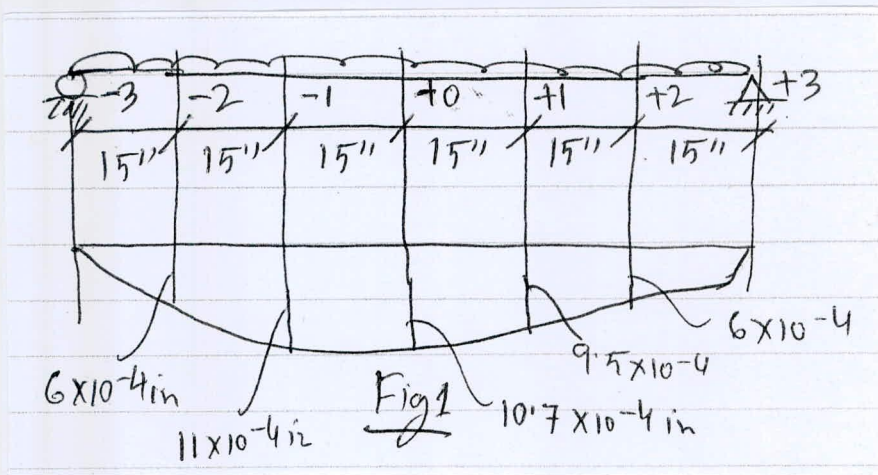 -3 -2 -1 +0 +1 +2 +3
15" 15" 15" 15" 15" 15"
6×10-4in
11×10-4in
Fig1
10.7×10-4 in
9.5×10-4
6×10-4